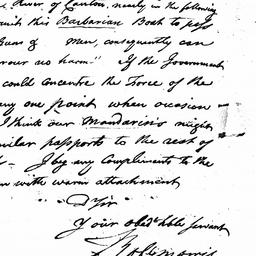 River of Canton, nearly in the following
this Barbarian Boat to pass
Guns of men, consequently can
your no harm." If the Government
could concentre the Force of the
any one point when occasion
I think our Mandarins might
similar passports to the rest of
I beg my Compliments to the
with warm attachment
D Sir
Your obedt hble servant